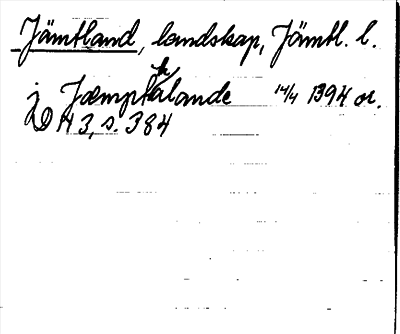 Jämtland, landskap, Jämtl. l.
j Jæmptalande 14/4 1394 or.
JD N 3, s. 384